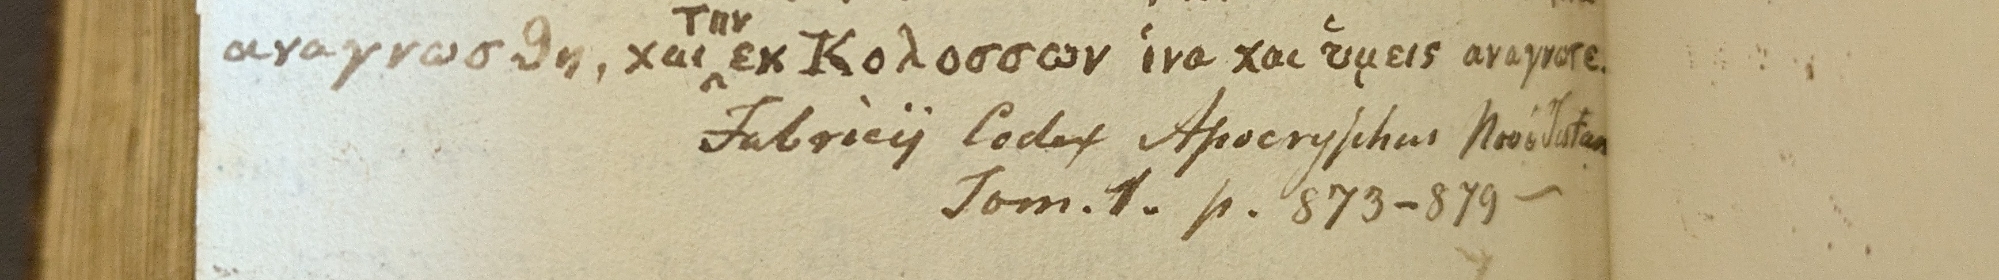 αναγνωσθη, και ^την εκ Κολοσσων ἱνα και ὑμεις αναγνοτε.
Fabricij Codex Apocryphus Novi Testam
Tom. 1. p. 873-879 -